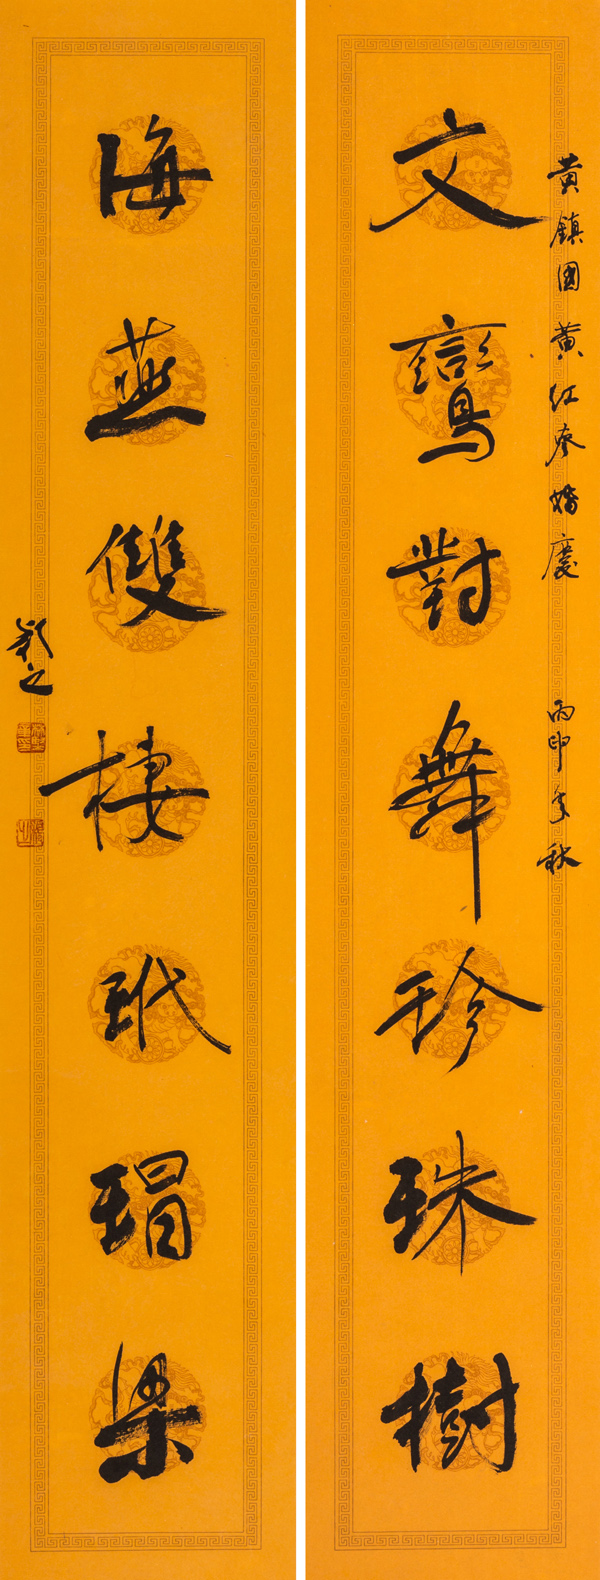 黄鎮國黄红婚慶
丙申年秋
文鸞對舞珍珠樹
海燕雙棲玳瑁梁